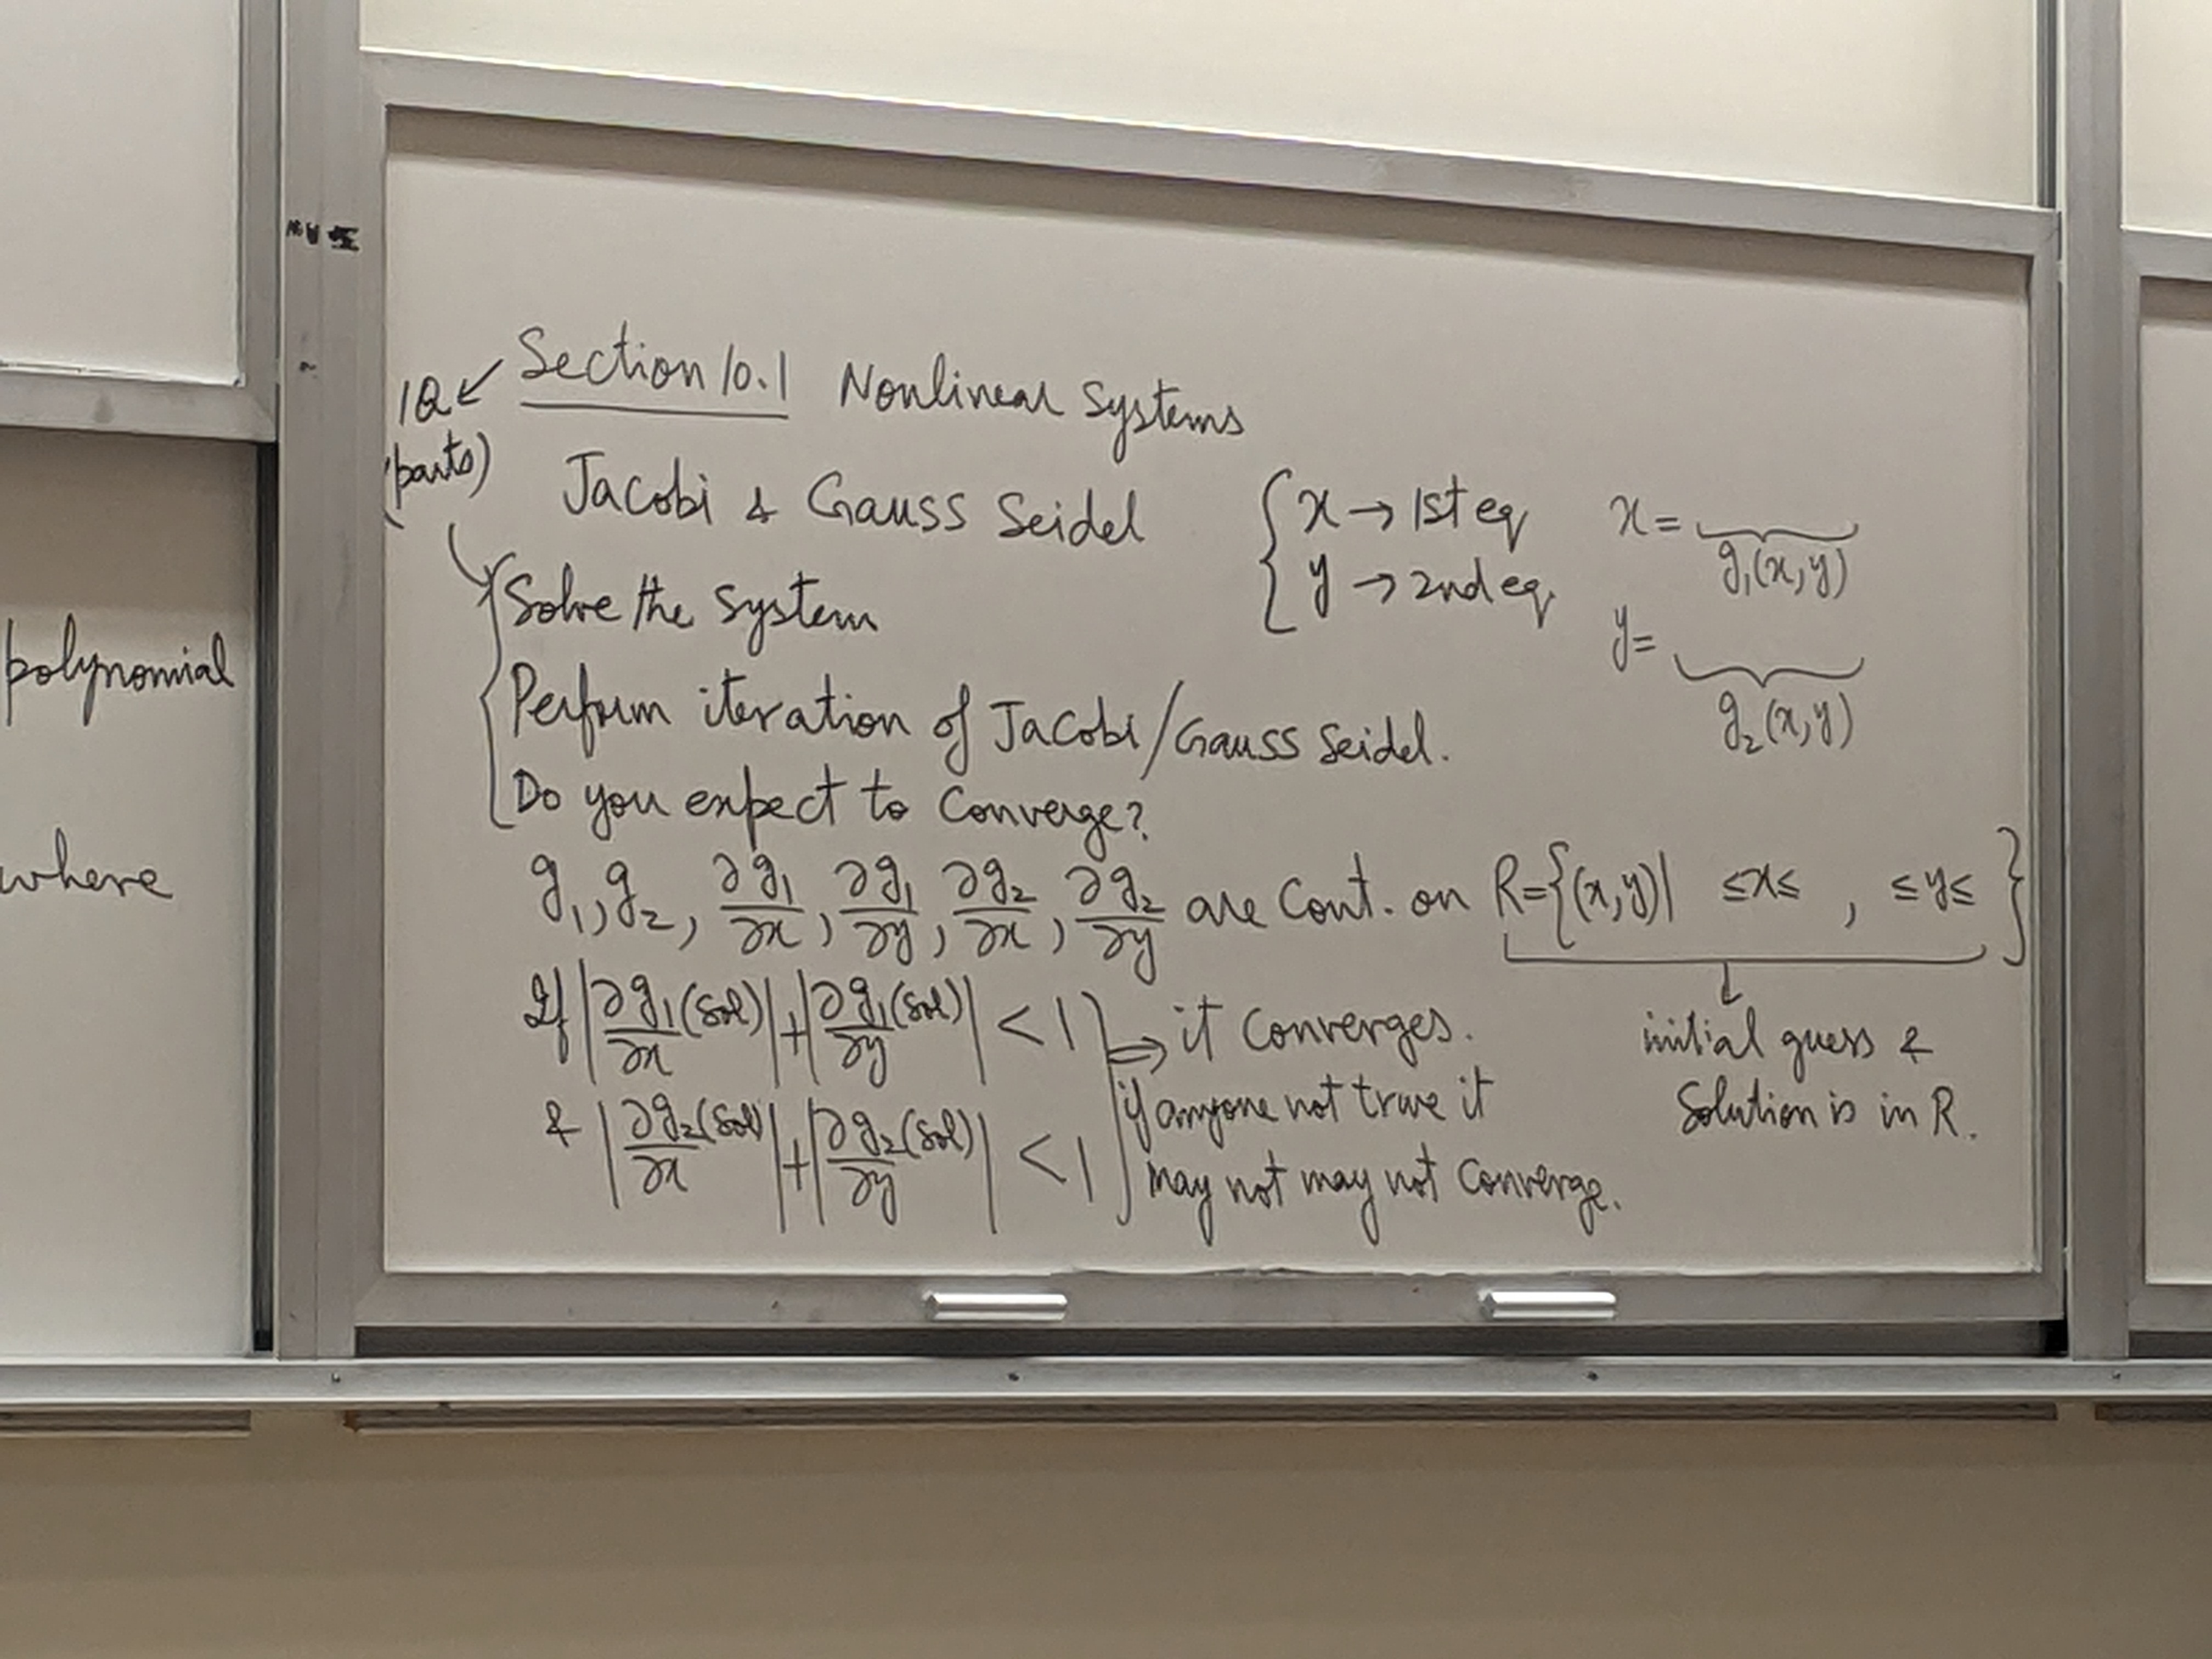 polynomial
where
1Q ← Section 10.1 Nonlinear Systems
(parts)
Jacobi & Gauss Seidel
{ x → 1st eq
y → 2nd eq.
x = g₁(x,y)
y = g₂(x,y)
Solve the system
Perform iteration of Jacobi/Gauss Seidel.
Do you expect to Converge?
g₁, g₂, ∂g₁/∂x, ∂g₁/∂y, ∂g₂/∂x, ∂g₂/∂y are Cont. on R={(x,y)| ≤x≤ , ≤y≤ }
initial guess &
Solution is in R.
If |∂g₁/∂x (sol)| + |∂g₁/∂y (sol)| < 1
& |∂g₂/∂x (sol)| + |∂g₂/∂y (sol)| < 1
⇒ it Converges.
if anyone not true it
may not may not Converge.